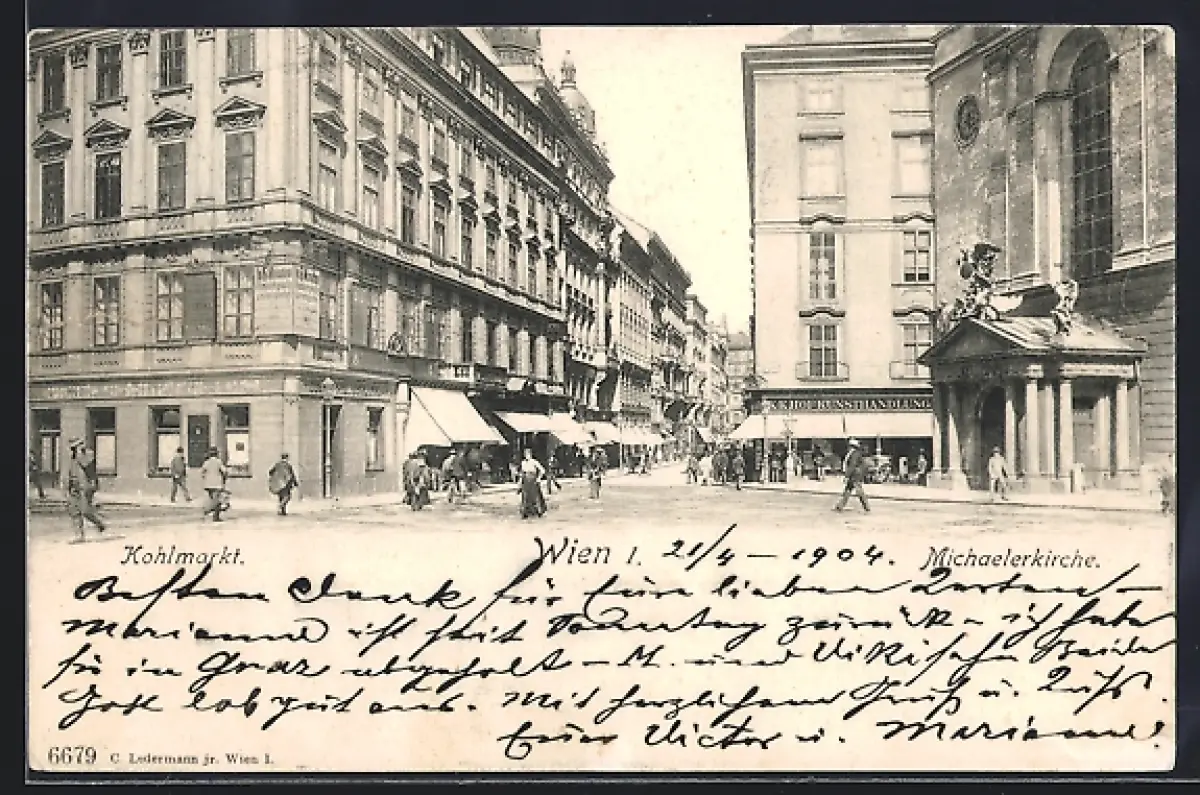 K. K. HOF KUNSTHANDLUNG
Kohlmarkt.
Wien I.
21/4 – 1904.
Michaelerkirche.
Besten Dank für Eure lieben Karten –
Marianne ist seit Sonntag zurück – ich habe
sie in Graz abgeholt – M. und Viki sehn Beide
Gott lob gut aus. Mit herzlichem Gruß u. Kuß.
Euer Victor u. Marianne.
6679 C. Ledermann jr. Wien I.